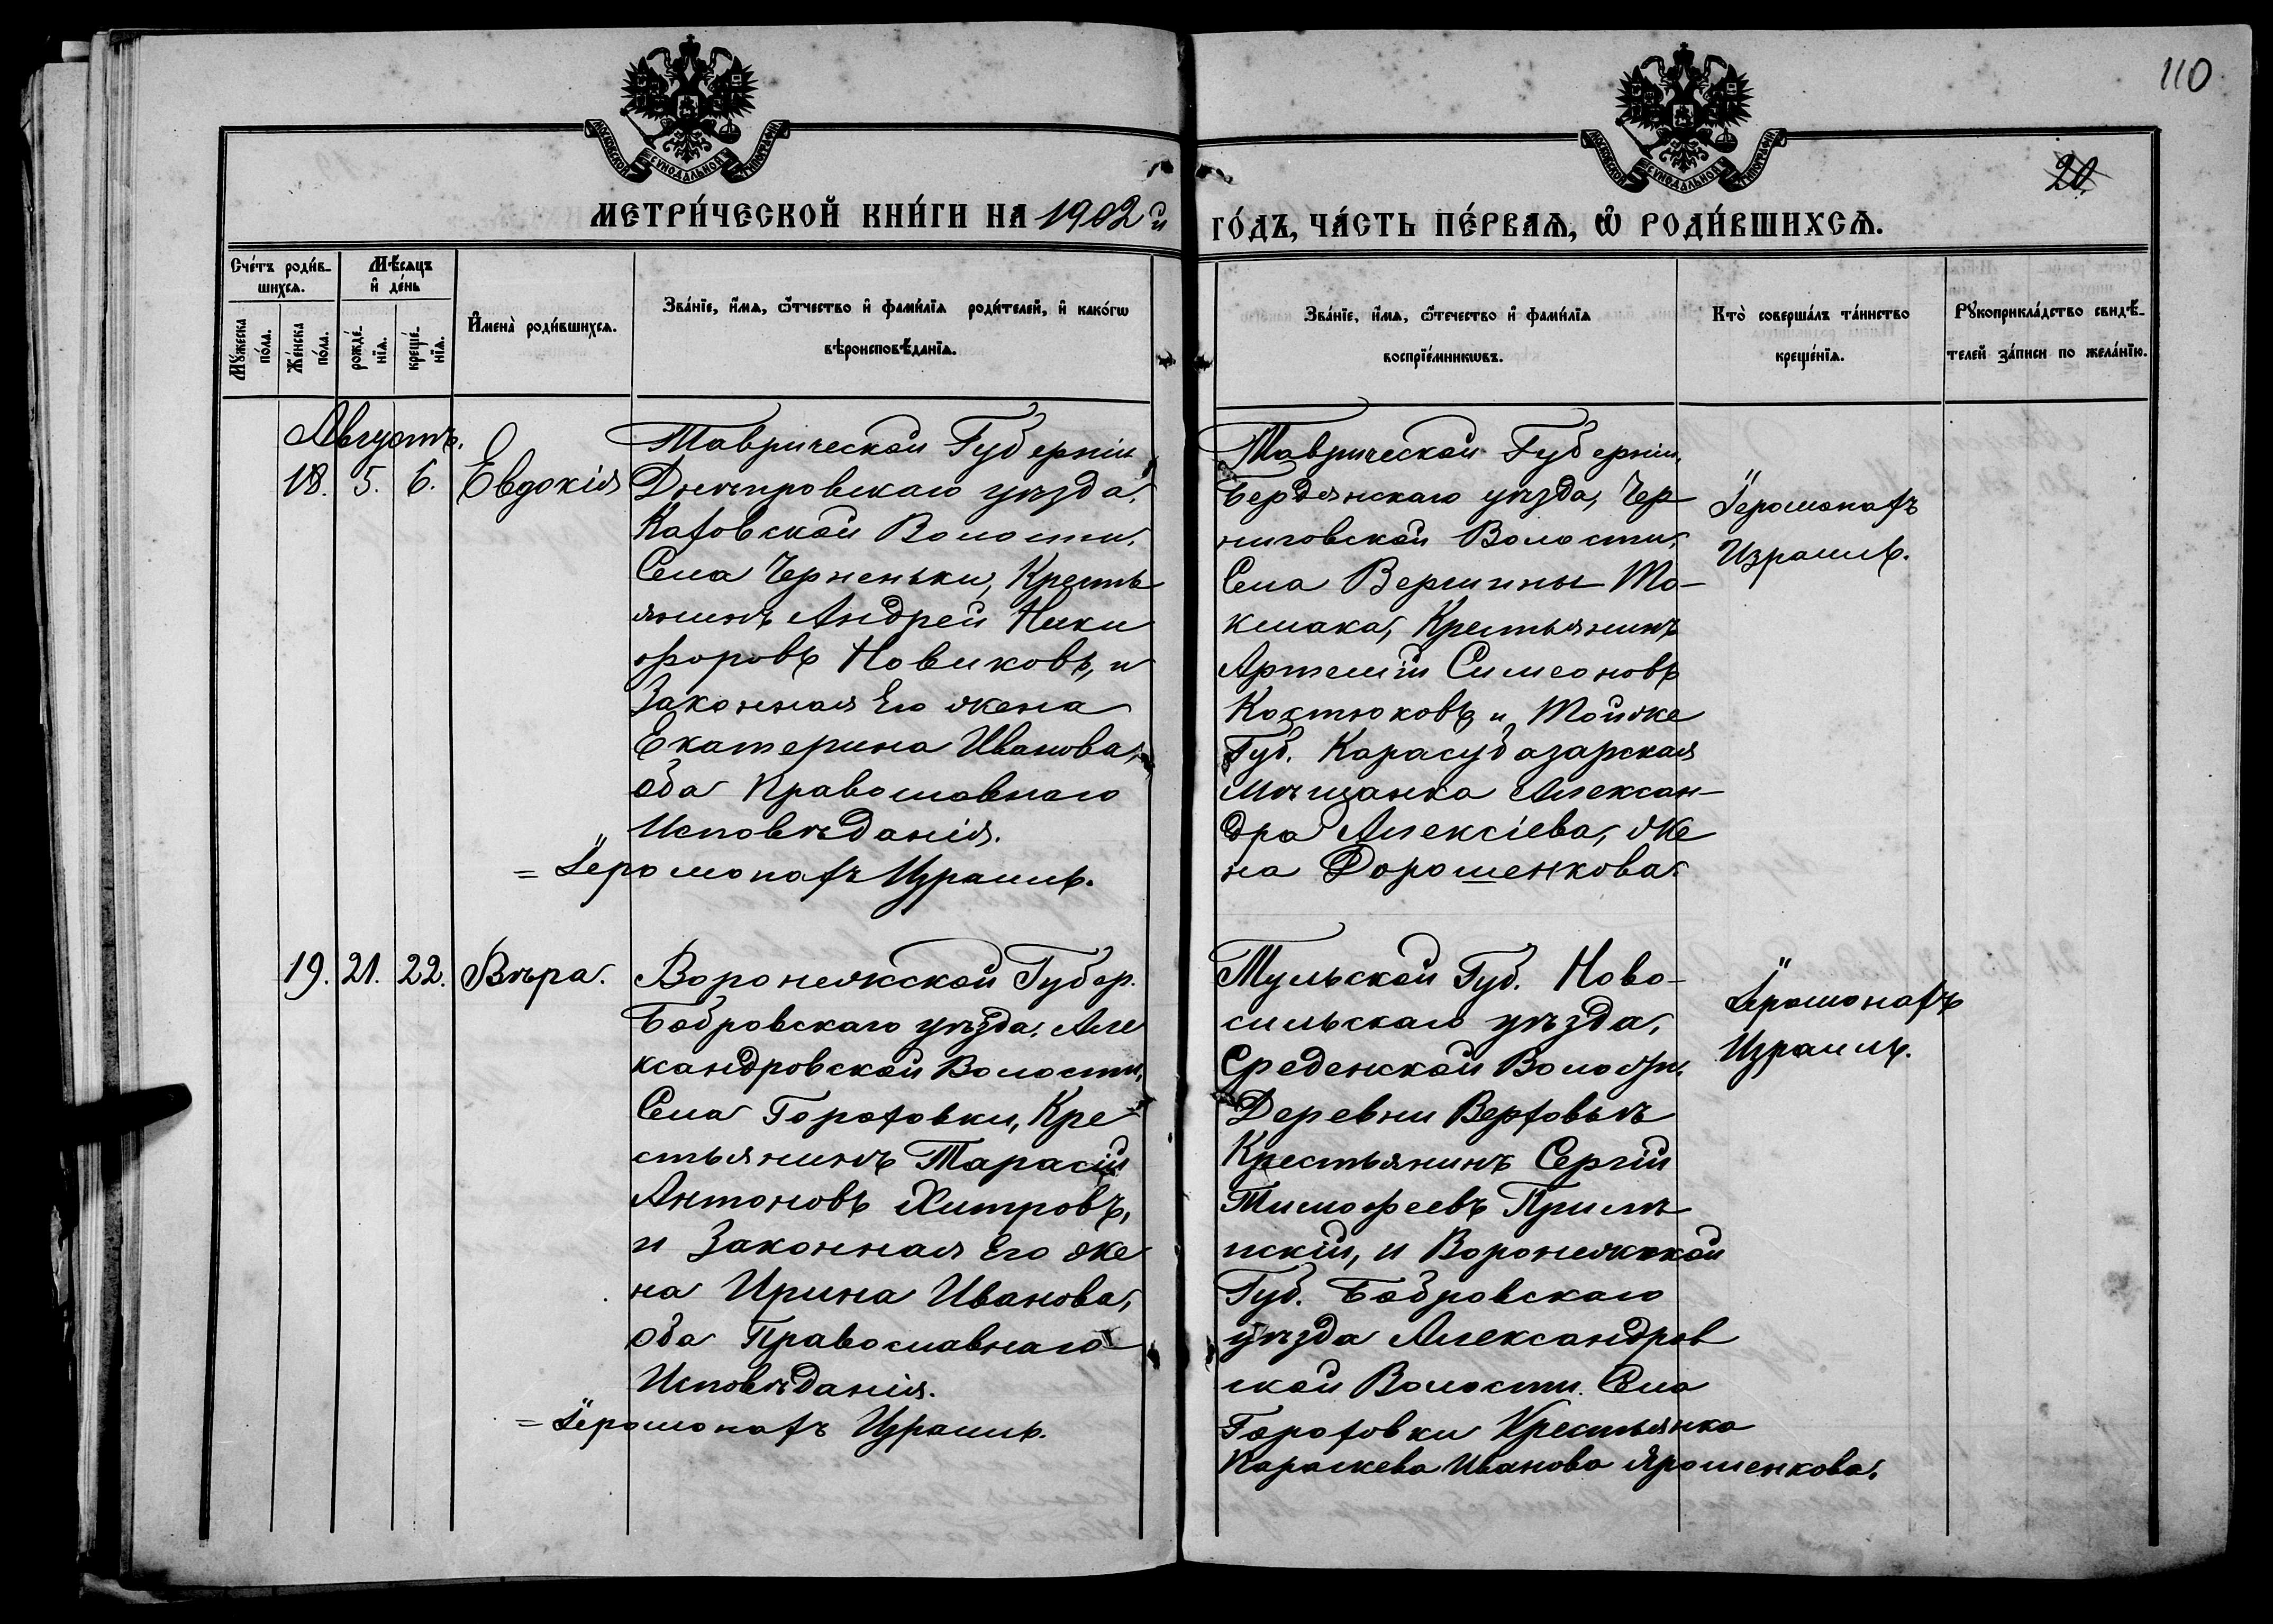 110
20.
МОСКОВСКОЙ СѴНОДАЛЬНОЙ ТИПОГРАФІИ
МОСКОВСКОЙ СѴНОДАЛЬНОЙ ТИПОГРАФІИ
МЕТРИ́ЧЕСКОЙ КНИ́ГИ НА 1902 й
ГО́ДЪ, ЧА́СТЬ ПЕ́РВАѦ, Ѡ РОДИ́ВШИХСѦ.
Сче́тъ роди́в-
шихсѧ.
Мꙋ́жеска по́ла.
Же́нска по́ла.
Мѣ́сѧцъ
и҆ де́нь
рожде́-
нїѧ.
креще́-
нїѧ.
И҆мена̀ роди́вшихсѧ.
Зва́нїе, и҆́мѧ, ѻ҆́тчество и҆ фами́лїѧ роди́телей, и҆ како́гѡ
вѣроисповѣ́данїѧ.
Зва́нїе, и҆́мѧ, ѻ҆́течество и҆ фами́лїѧ
воспрїе́мникѡвъ.
Кто̀ соверша́лъ та́инство
креще́нїѧ.
Рꙋкоприкла́дство свидѣ́-
телей за́писи по жела́нїю.
Августъ.
18. 5. 6. Евдокія
Таврической Губерніи
Днѣпровскаго уѣзда,
Каховской Волости,
Села Черненьки, Кресть
янинъ Андрей Ники
форовъ Новиковъ, и
Законная Его жена
Екатерина Иванова,
оба Православнаго
Исповѣданія.
= Іеромонахъ Израиль.
Таврической Губерніи,
Бердянскаго уѣзда, Чер
ниговской Волости,
Села Вершины То-
кмака, Крестьянинъ
Артемій Симеоновъ
Костюковъ и Тойже
Губ. Карасубазарская
мѣщанка Алексан-
дра Алексіева, же
на Дорошенкова.
Іеромонахъ
Израиль.
19. 21. 22. Вѣра.
Воронежской Губер.
Бобровскаго уѣзда, Але
ксандровской Волости,
Села Гороховки, Кре
стьянинъ Тарасій
Антоновъ Хитровъ,
и Законная Его же
на Ирина Иванова,
оба Православнаго
Исповѣданія.
= Іеромонахъ Израиль.
Тульской Губ. Ново-
сильскаго уѣзда,
Среденской Волости,
Деревни Верховья
Крестьянинъ Сергій
Тимофеевъ
и Воронежской
Губ. Бобровскаго
уѣзда Александров
ской Волости. Села
Гороховки Крестьянка
Параскева Иванова Ярошенкова.
Іеромонахъ
Израиль.